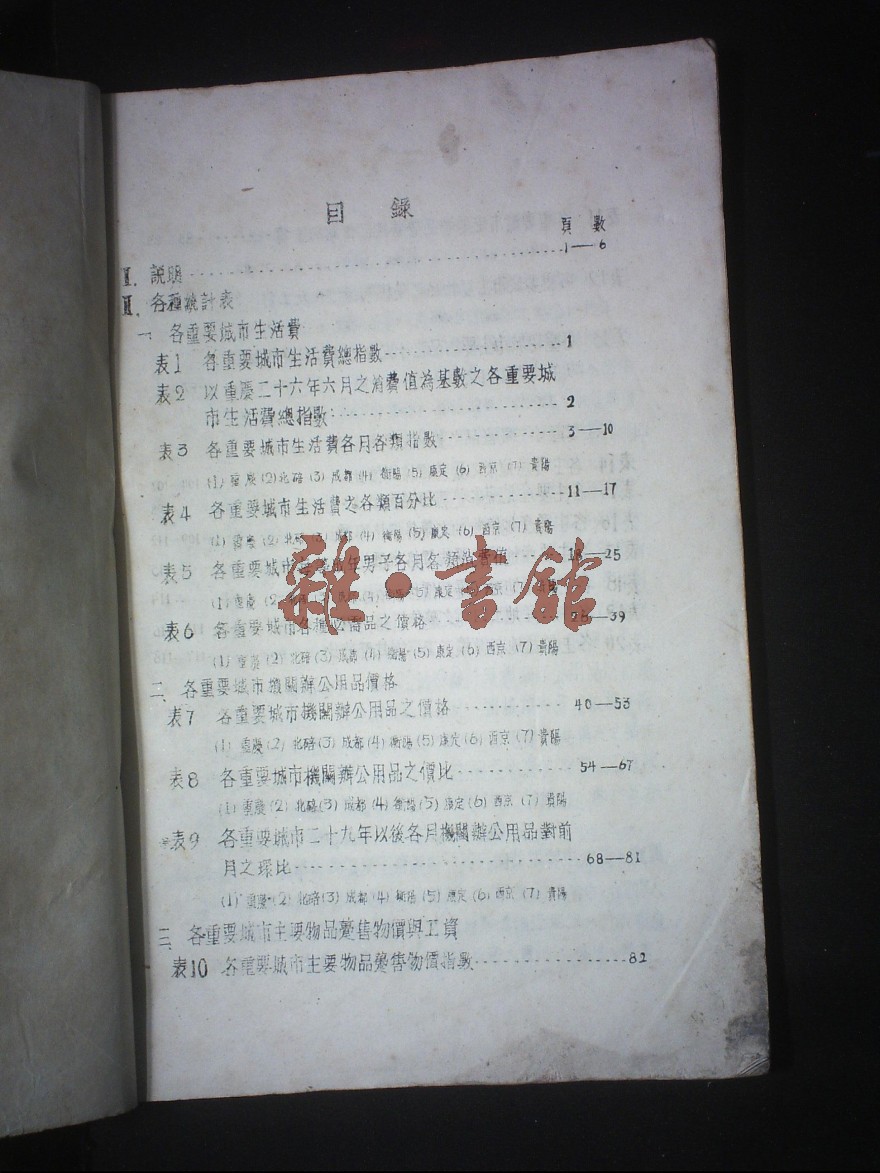 目 錄
頁 數
I. 説明 1—6
II. 各種統計表
一、各重要城市生活費
表1 各重要城市生活費總指數 1
表2 以重慶二十六年六月之消費值為基數之各重要城
市生活費總指數 2
表3 各重要城市生活費各月各類指數 3—10
(1) 重慶 (2) 北碚 (3) 成都 (4) 衡陽 (5) 康定 (6) 西京 (7) 貴陽
表4 各重要城市生活費之各類百分比 11—17
(1) 重慶 (2) 北碚 (3) 成都 (4) 衡陽 (5) 康定 (6) 西京 (7) 貴陽
雜·書館
表5 各重要城市 年男子各月各類消費值 18—25
(1) 重慶 (2) 北碚 (3) 成都 (4) 衡陽 (5) 康定 (6) 西京 (7) 貴陽
表6 各重要城市各種必需品之價格 26—39
(1) 重慶 (2) 北碚 (3) 成都 (4) 衡陽 (5) 康定 (6) 西京 (7) 貴陽
二、各重要城市機關辦公用品價格
表7 各重要城市機關辦公用品之價格 40—53
(1) 重慶 (2) 北碚 (3) 成都 (4) 衡陽 (5) 康定 (6) 西京 (7) 貴陽
表8 各重要城市機關辦公用品之價比 54—67
(1) 重慶 (2) 北碚 (3) 成都 (4) 衡陽 (5) 康定 (6) 西京 (7) 貴陽
表9 各重要城市二十九年以後各月機關辦公用品對前
月之環比 68—81
(1) 重慶 (2) 北碚 (3) 成都 (4) 衡陽 (5) 康定 (6) 西京 (7) 貴陽
三、各重要城市主要物品躉售物價與工資
表10 各重要城市主要物品躉售物價指數 82